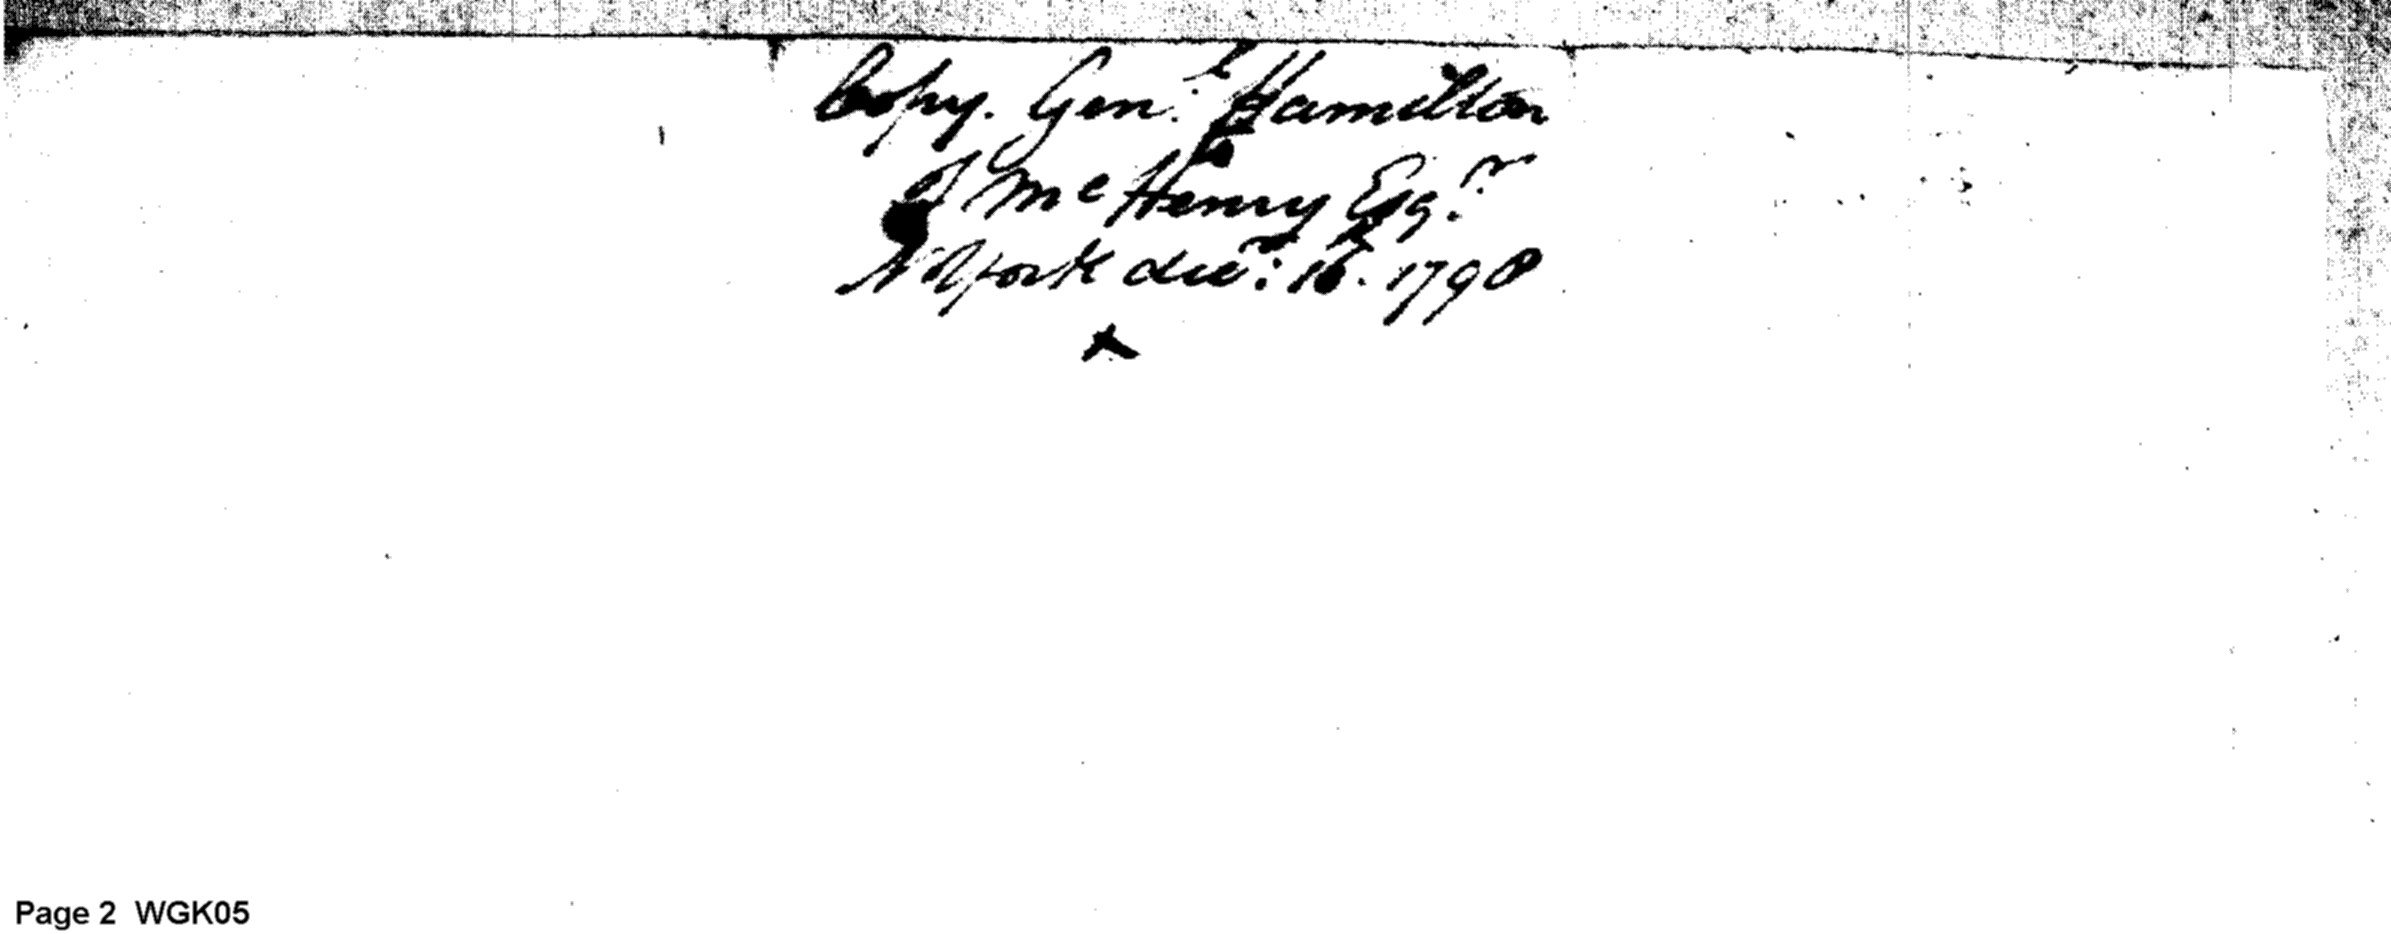 Copy. Gen.l Hamilton
to
J McHenry Esq.r
N York dec.r: 16. 1798
Page 2 WGK05